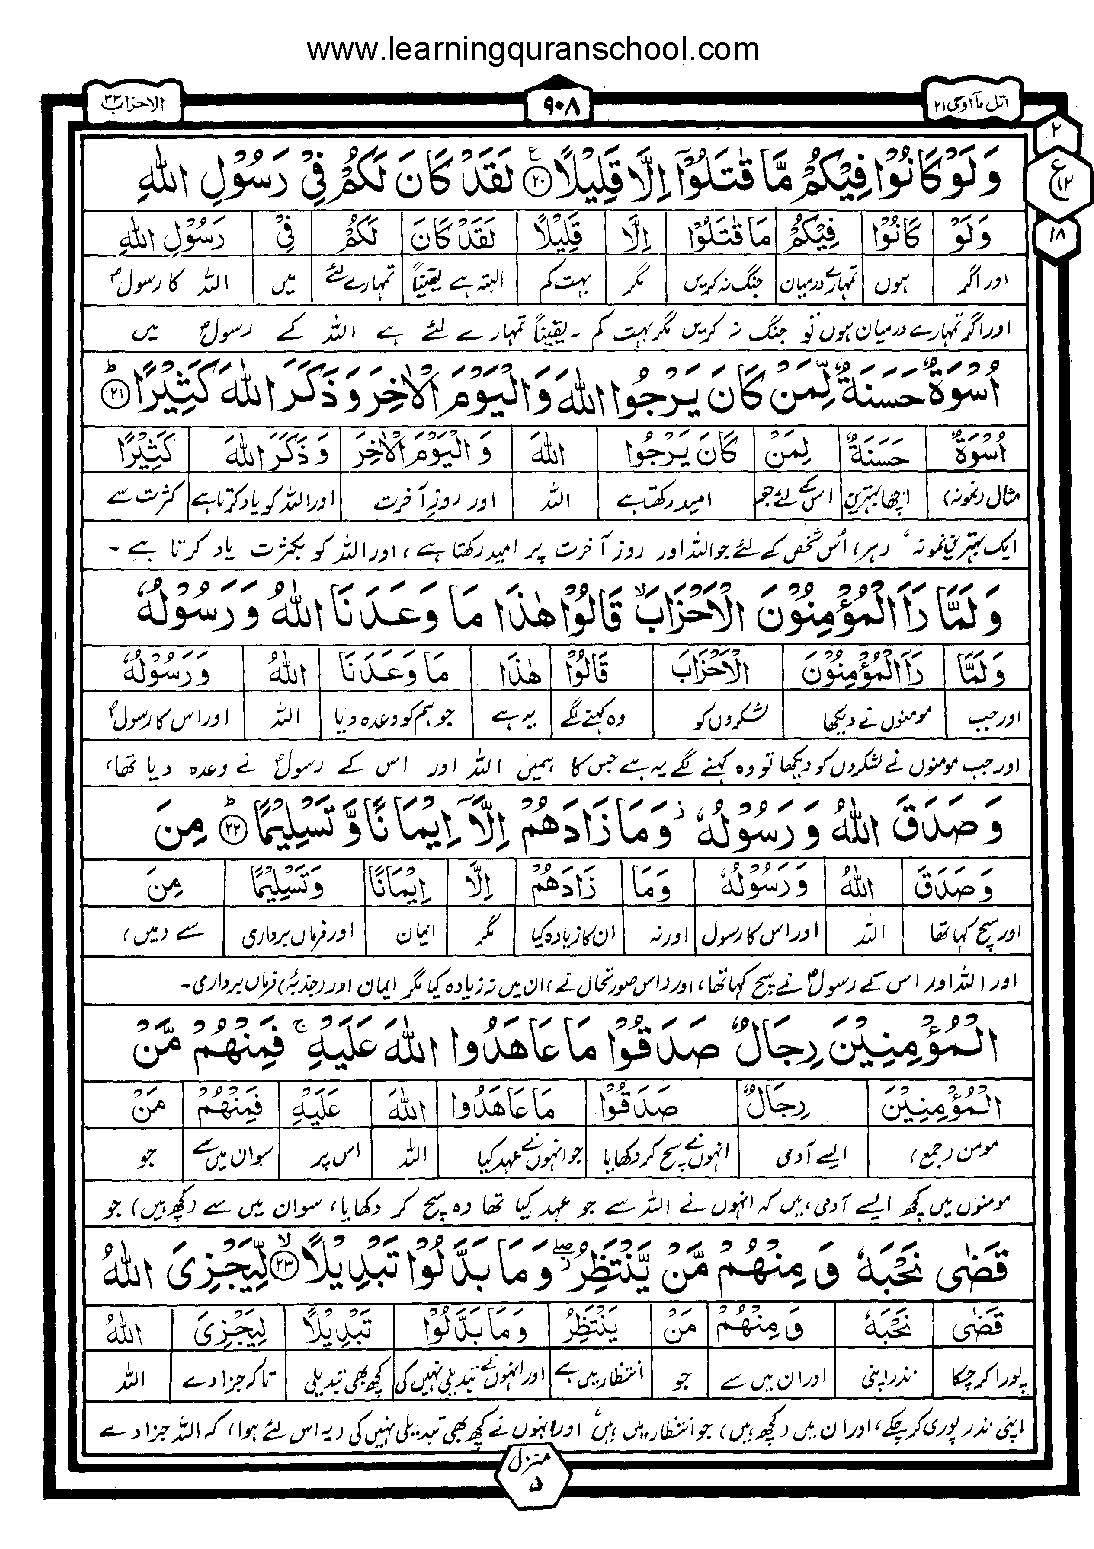 www.learningquranschool.com
اتل ماأوحی ۲۱
۹۰۸
الاحزاب ۳۳
۲
ع
۱۲
۱۸
وَلَوْ كَانُوْا فِيْكُمْ مَّا قٰتَلُوْٓا اِلَّا قَلِيْلًا ۲۰ لَقَدْ كَانَ لَكُمْ فِيْ رَسُوْلِ اللّٰهِ
وَلَوْ كَانُوْا فِيْكُمْ مَا قٰتَلُوْا اِلَّا قَلِيْلًا لَقَدْ كَانَ لَكُمْ فِيْ رَسُوْلِ اللّٰهِ
اور اگر ہوں تمہارے درمیان جنگ نہ کریں مگر بہت کم البتہ ہے یقیناً تمہارے لئے میں اللہ کا رسولؐ
اور اگر تمہارے درمیان ہوں تو جنگ نہ کریں مگر بہت کم ۔ یقیناً تمہارے لئے ہے اللہ کے رسولؐ میں
اُسْوَةٌ حَسَنَةٌ لِّمَنْ كَانَ يَرْجُوا اللّٰهَ وَالْيَوْمَ الْاٰخِرَ وَذَكَرَ اللّٰهَ كَثِيْرًا ۲۱
اُسْوَةٌ حَسَنَةٌ لِمَنْ كَانَ يَرْجُوا اللّٰهَ وَالْيَوْمَ الْاٰخِرَ وَذَكَرَ اللّٰهَ كَثِيْرًا
مثال (نمونہ) اچھا بہترین اس کے لئے جو امید رکھتا ہے اللہ اور روزِ آخرت اور اللہ کو یاد کرتا ہے کثرت سے
ایک بہترین نمونہ (ہر) اُس شخص کے لئے جو اللہ اور روز آخرت پر امید رکھتا ہے، اور اللہ کو بکثرت یاد کرتا ہے ۔
وَلَمَّا رَاَ الْمُؤْمِنُوْنَ الْاَحْزَابَ قَالُوْا هٰذَا مَا وَعَدَنَا اللّٰهُ وَرَسُوْلُهٗ
وَلَمَّا رَاَ الْمُؤْمِنُوْنَ الْاَحْزَابَ قَالُوْا هٰذَا مَا وَعَدَنَا اللّٰهُ وَرَسُوْلُهٗ
اور جب مومنوں نے دیکھا لشکروں کو وہ کہنے لگے یہ ہے جو ہم کو وعدہ دیا اللہ اور اس کا رسولؐ
اور جب مومنوں نے لشکروں کو دیکھا تو وہ کہنے لگے یہ ہے جس کا ہمیں اللہ اور اس کے رسولؐ نے وعدہ دیا تھا،
وَصَدَقَ اللّٰهُ وَرَسُوْلُهٗ ز وَمَا زَادَهُمْ اِلَّآ اِيْمَانًا وَّتَسْلِيْمًا ۲۲ مِنَ
وَصَدَقَ اللّٰهُ وَرَسُوْلُهٗ وَمَا زَادَهُمْ اِلَّا اِيْمَانًا وَتَسْلِيْمًا مِنَ
اور سچ کہا تھا اللہ اور اس کا رسول اور نہ ان کا زیادہ کیا مگر ایمان اور فرماں برداری سے (میں)
اور اللہ اور اس کے رسولؐ نے سچ کہا تھا، اور (اس صورتحال نے) ان میں نہ زیادہ کیا مگر ایمان اور (جذبۂ) فرماں برداری۔
الْمُؤْمِنِيْنَ رِجَالٌ صَدَقُوْا مَا عَاهَدُوا اللّٰهَ عَلَيْهِ ج فَمِنْهُمْ مَّنْ
الْمُؤْمِنِيْنَ رِجَالٌ صَدَقُوْا مَا عَاهَدُوا اللّٰهَ عَلَيْهِ فَمِنْهُمْ مَنْ
مومن (جمع) ایسے آدمی انہوں نے سچ کر دکھایا جو انہوں نے عہد کیا اللہ اس پر سو ان میں سے جو
مومنوں میں کچھ ایسے آدمی ہیں کہ انہوں نے اللہ سے جو عہد کیا تھا وہ سچ کر دکھایا، سو ان میں سے (کچھ ہیں) جو
قَضٰى نَحْبَهٗ وَمِنْهُمْ مَّنْ يَّنْتَظِرُ وَمَا بَدَّلُوْا تَبْدِيْلًا ۲۳ لِّيَجْزِيَ اللّٰهُ
قَضٰى نَحْبَهٗ وَمِنْهُمْ مَنْ يَنْتَظِرُ وَمَا بَدَّلُوْا تَبْدِيْلًا لِيَجْزِيَ اللّٰهُ
پورا کر چکا نذر اپنی اور ان میں سے جو انتظار میں ہے اور انہوں نے تبدیلی نہیں کی کچھ بھی تبدیلی تاکہ جزا دے اللہ
اپنی نذر پوری کر چکے، اور ان میں (کچھ ہیں) جو انتظار میں ہیں اور انہوں نے کچھ بھی تبدیلی نہیں کی (یہ اس لئے ہوا) کہ اللہ جزا دے
منزل
۵